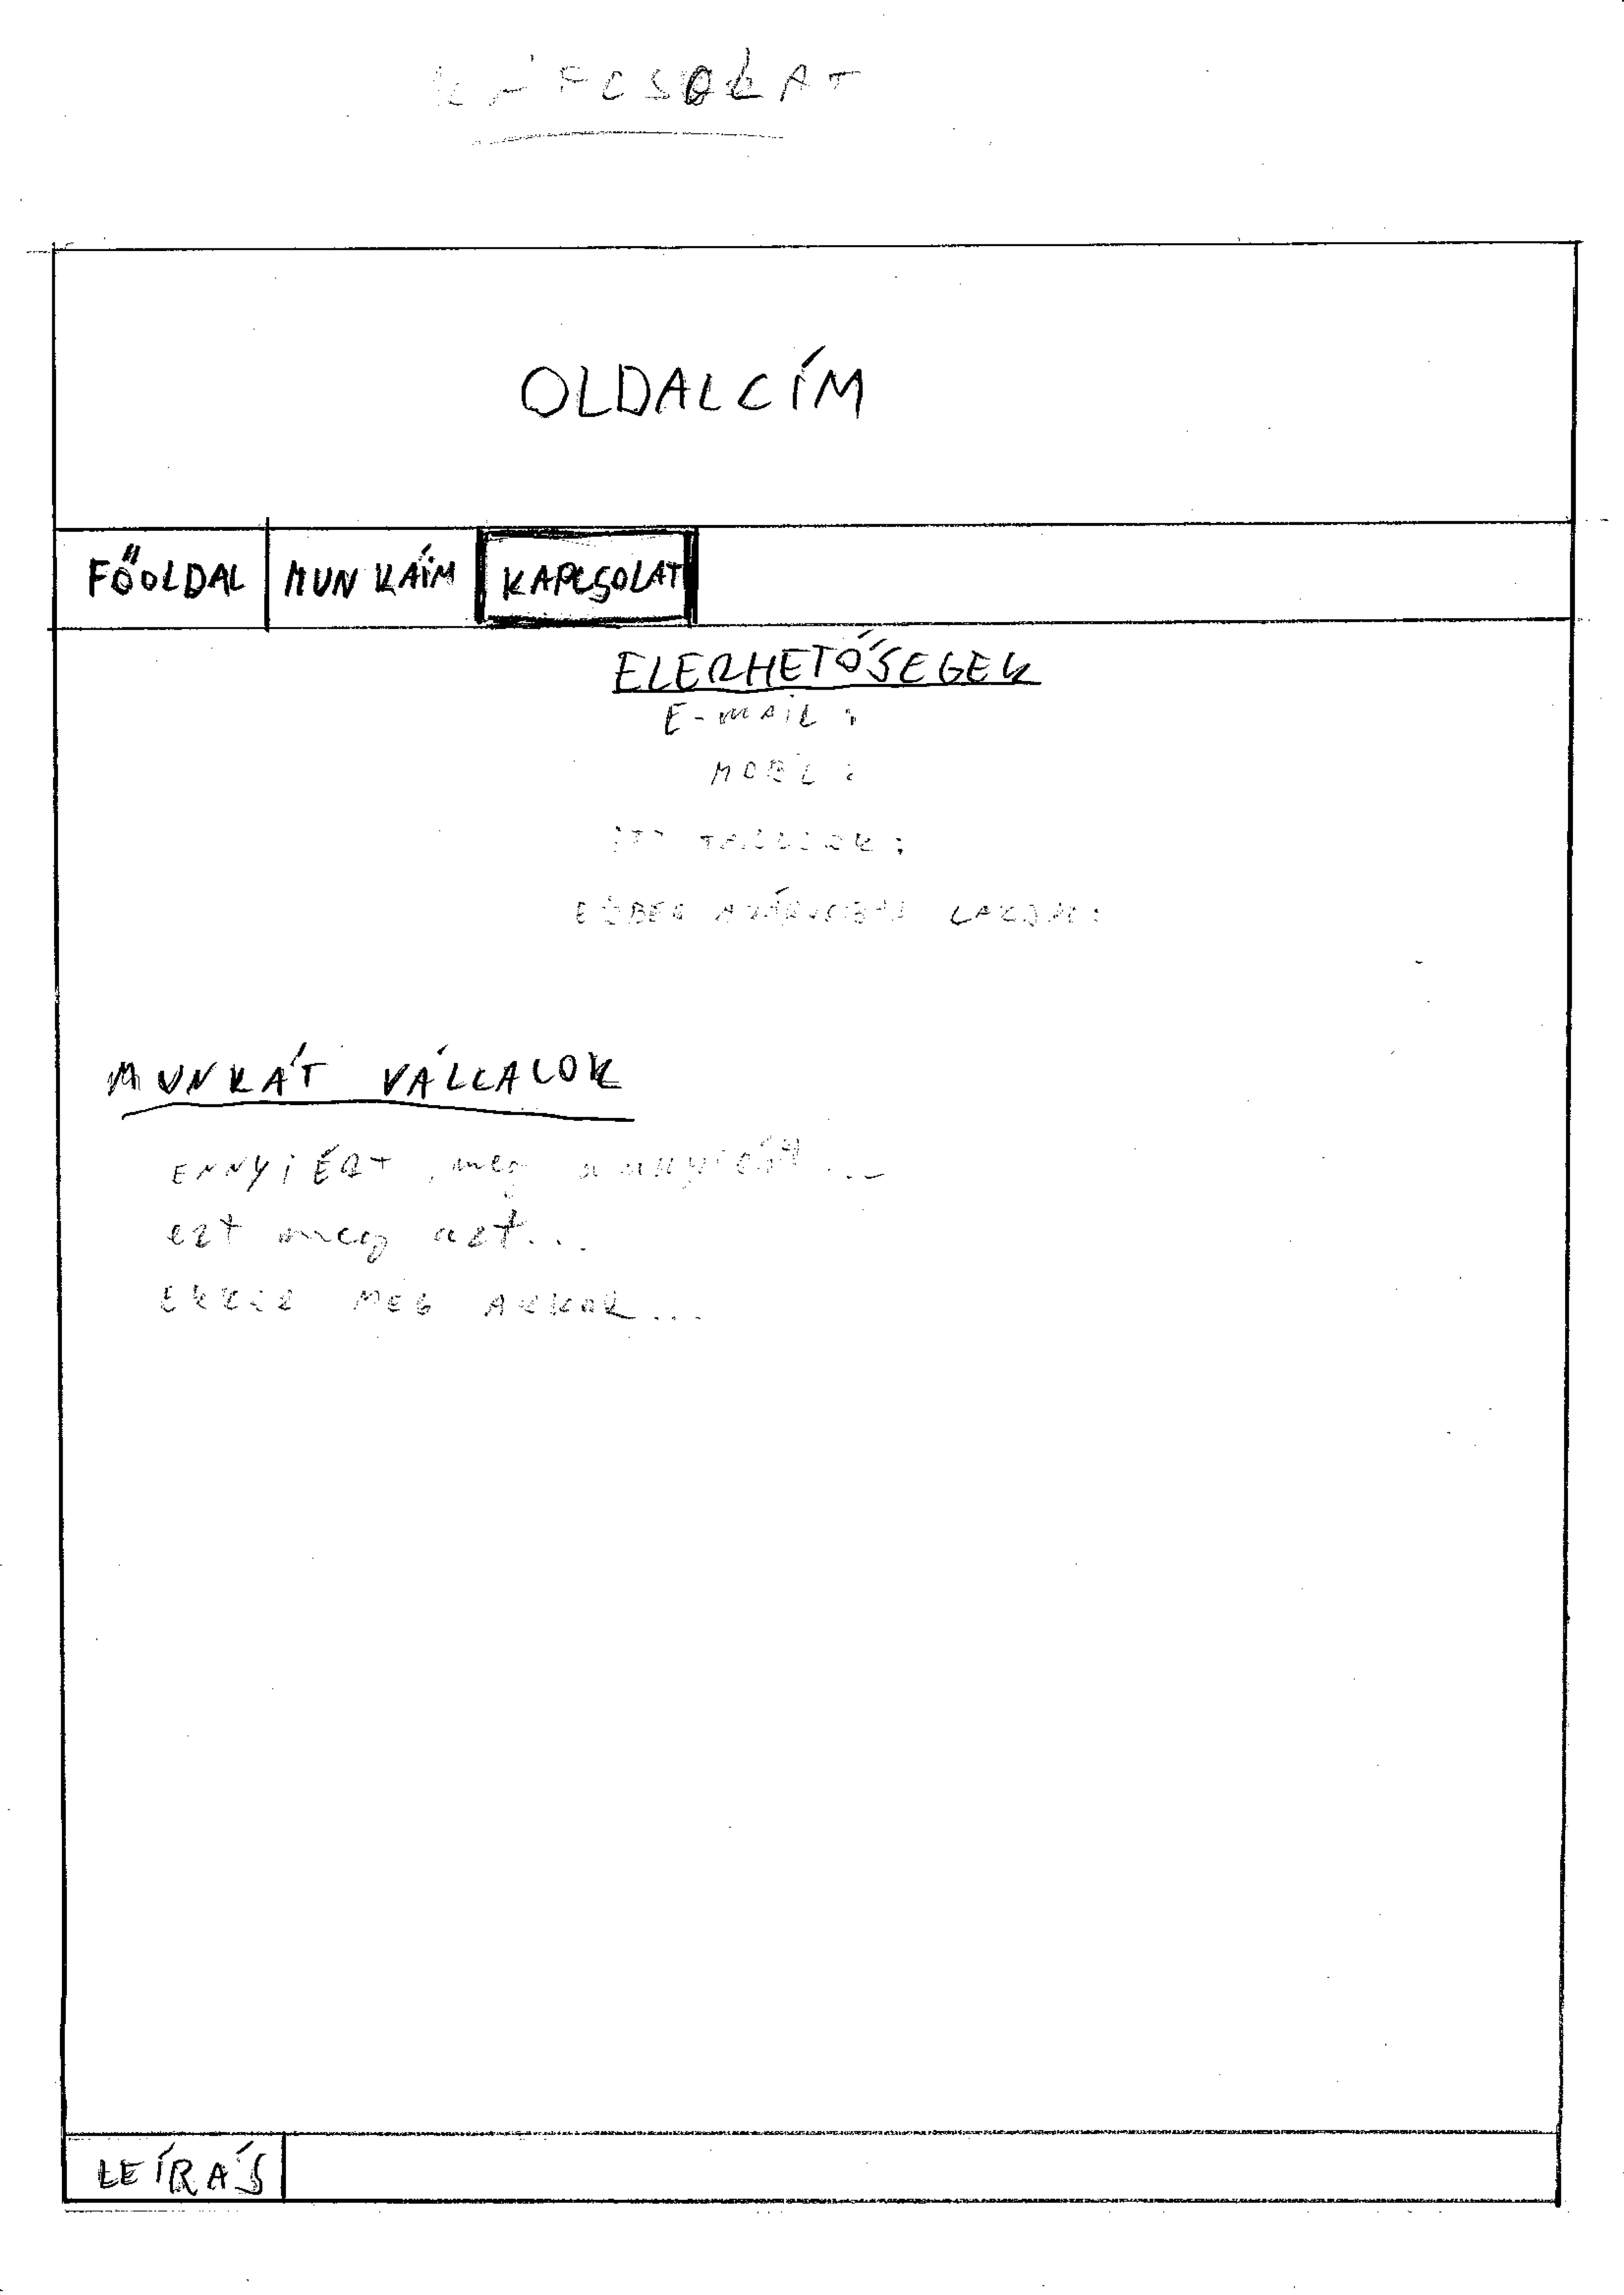 OLDALCÍM
FŐOLDAL MUNKÁIM KAPCSOLAT
ELERHETŐSEGEK
E-MAIL:
MOBIL:
LAKOM:
MUNKÁT VÁLLALOK
ENNYIÉRT, meg annyiért...
ezt meg azt...
EKKOR MEG AKKOR...
LEÍRÁS